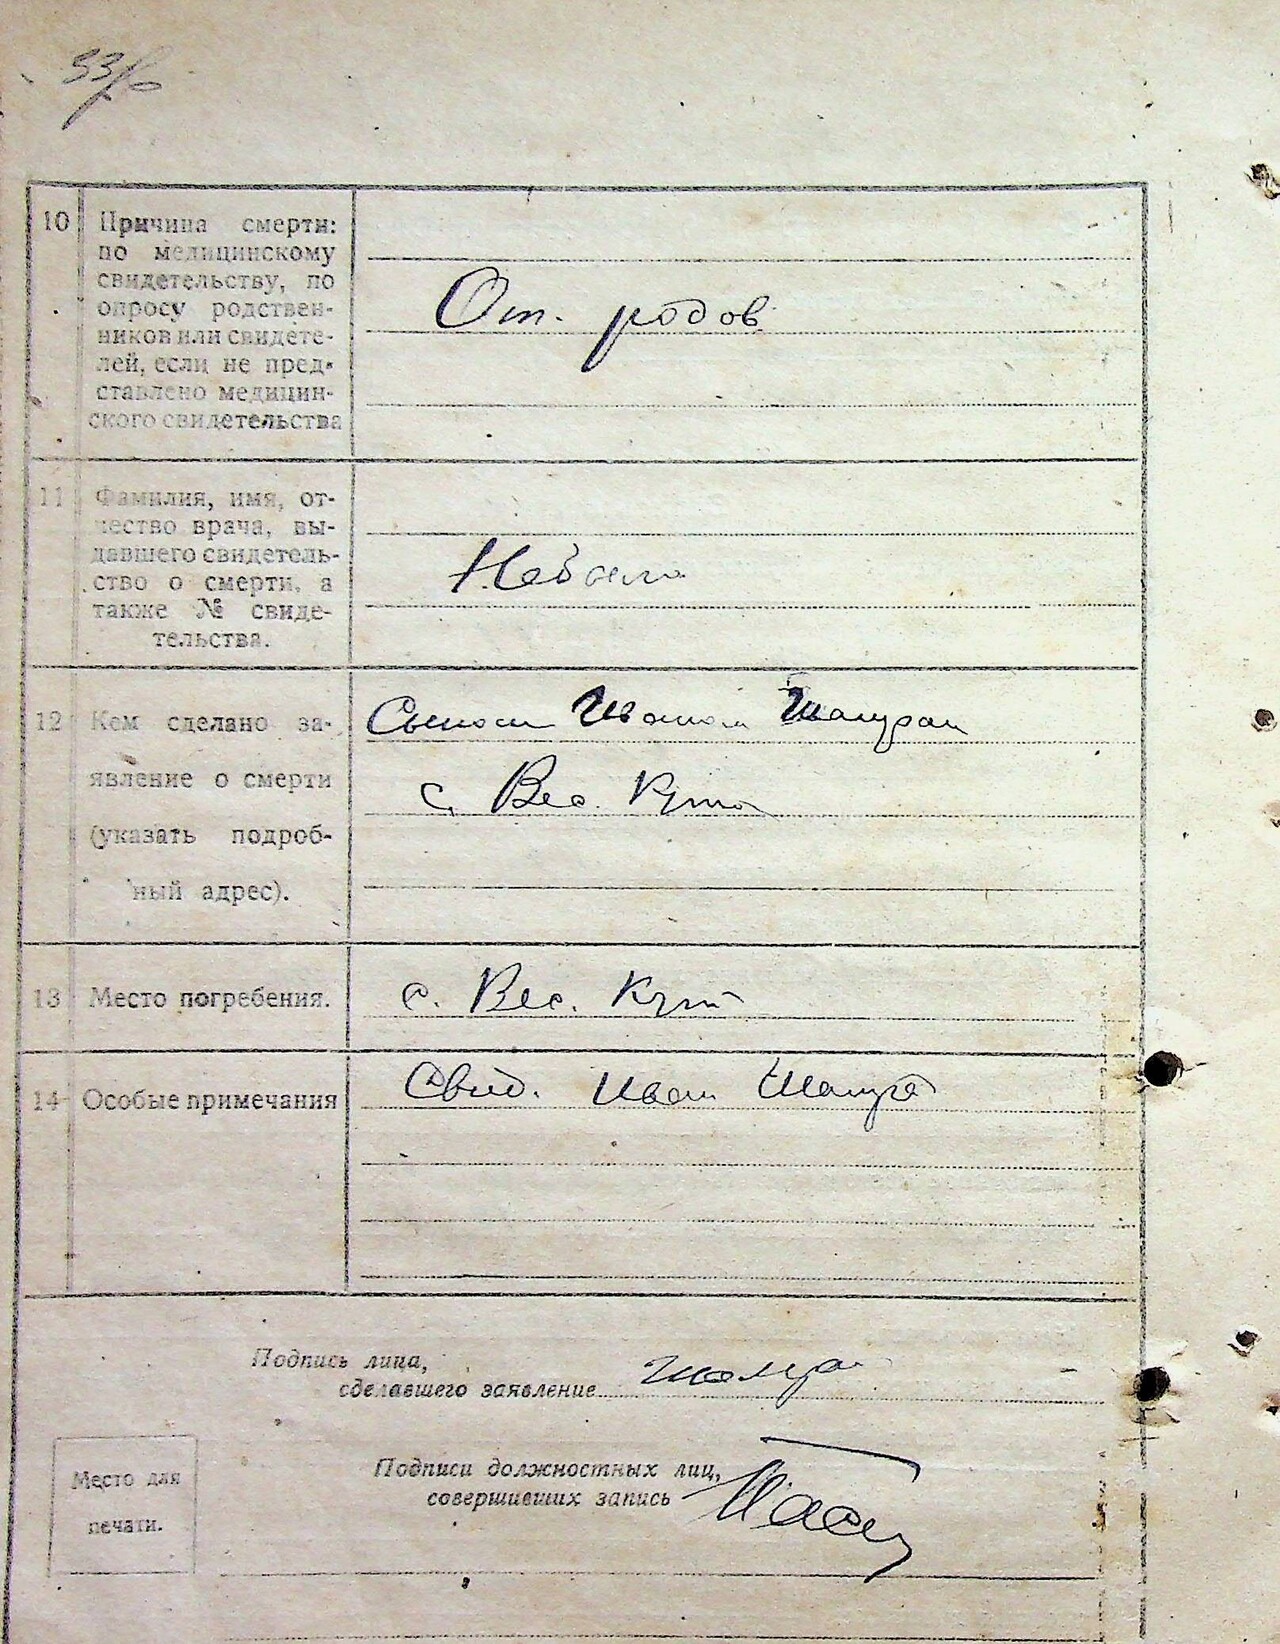 10 Причина смерти:
по медицинскому
свидетельству, по
опросу родствен-
ников или свидете-
лей, если не пред-
ставлено медицин-
ского свидетельства
От родов
11 Фамилия, имя, от-
чество врача, вы-
давшего свидетель-
ство о смерти, а
также № свиде-
тельства.
12 Кем сделано за-
явление о смерти
(указать подроб-
ный адрес).
Сыном Иваном
с. Вес. Кута
13 Место погребения.
с. Вес. Кут
14 Особые примечания
Свид. Иван
Подпись лица,
сделавшего заявление
Подписи должностных лиц,
совершивших запись
Место для
печати.